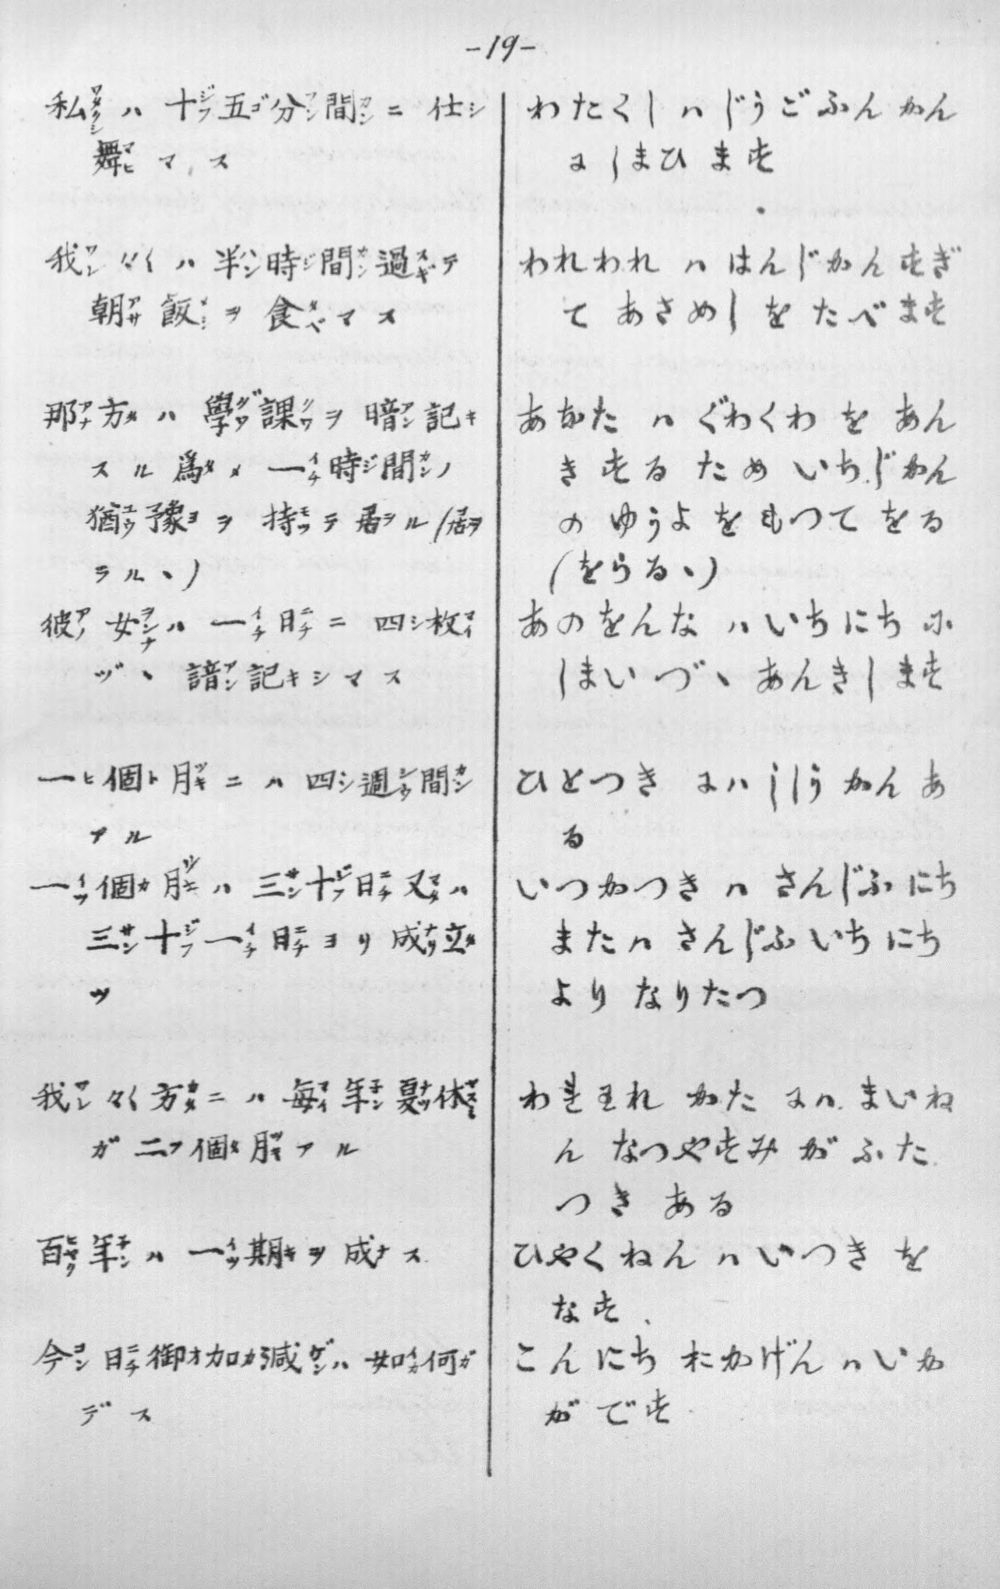 -19-
私ハ十五分間ニ仕
舞マス
我々ハ半時間過テ
朝飯ヲ食マス
那方ハ學課ヲ暗記
スル爲メ一時間ノ
猶豫ヲ持テ居ル(居
ラルヽ)
彼女ハ一日ニ四枚
ヅヽ諳記シマス
一個月ニハ四週間
アル
一個月ハ三十日又ハ
三十一日ヨリ成立
ツ
我々方ニハ每年夏休
ガ二個月アル
百年ハ一期ヲ成ス
今日御加減ハ如何
デス
わたくしハじうごふんかん
にしまひます
われわれハはんじかんすぎ
てあさめしをたべます
あなたハぐわくわをあん
きするためいちじかん
のゆうよをもつてをる
(をらるヽ)
あのをんなハいちにちに
しまいづヽあんきします
ひとつきにハししうかんあ
る
いつかつきハさんじふにち
またハさんじふいちにち
よりなりたつ
われわれかたにハまいね
んなつやすみがふた
つきある
ひやくねんハいつきを
なす、
こんにちおかげんハいか
がです